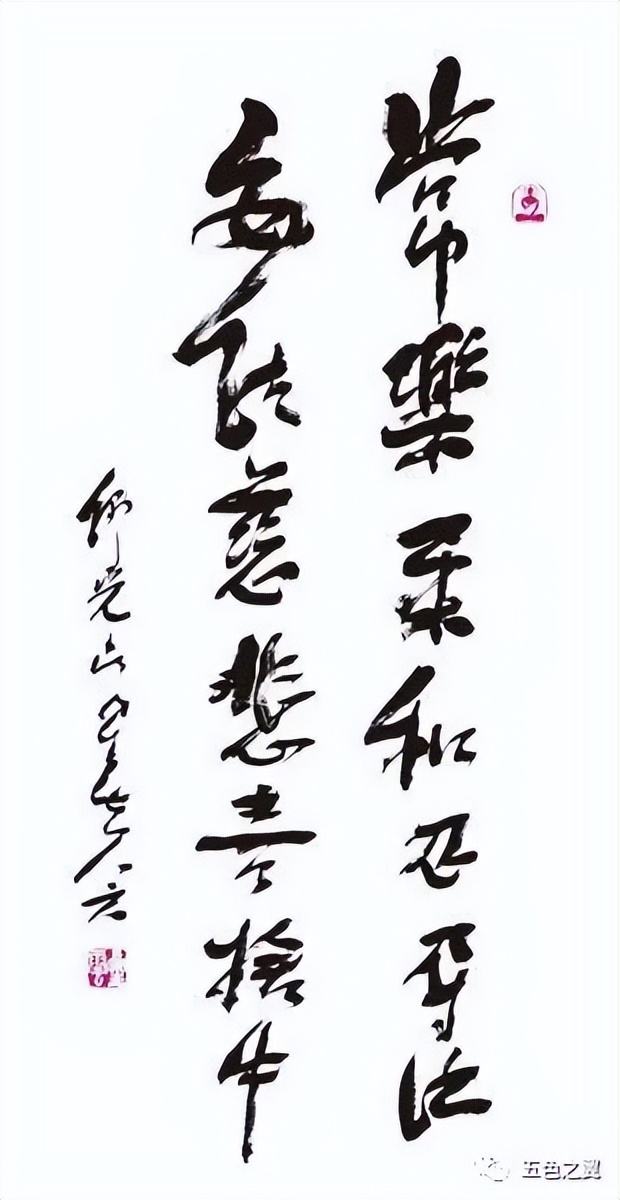 常樂柔和忍辱法
安慈悲喜捨中
佛光山
五色之翼